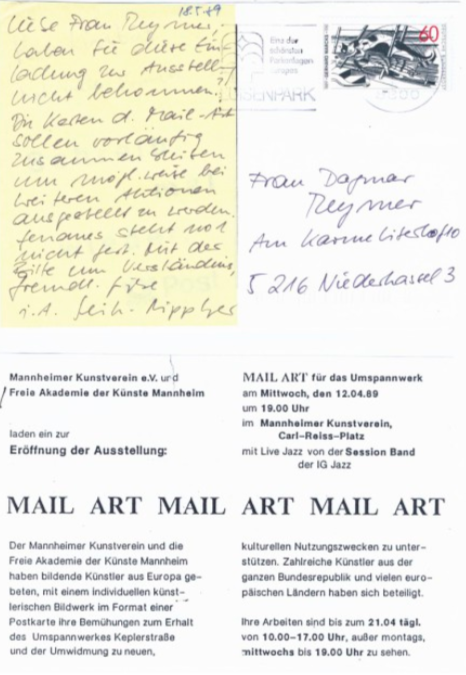 18.5.89
Liebe Frau Meymer,
haben Sie diese Ein-
ladung zur Ausstell.
nicht bekommen?
Die Karten d. Mail-Art
sollen vorläufig
zusammen bleiben
um mögl.weise bei
weiteren Aktionen
ausgestellt zu werden.
Genaues steht noch
nicht fest. Mit der
Bitte um Verständnis,
freundl. Grüße
i.A.
Eine der
schönsten
Parkanlagen
Europas
LUISENPARK
60
Frau Dagmar
Meymer
Am Karmeliterhof 10
5216 Niederkassel 3
Mannheimer Kunstverein e.V. und
Freie Akademie der Künste Mannheim
laden ein zur
Eröffnung der Ausstellung:
MAIL ART für das Umspannwerk
am Mittwoch, den 12.04.89
um 19.00 Uhr
im Mannheimer Kunstverein,
Carl-Reiss-Platz
mit Live Jazz von der Session Band
der IG Jazz
MAIL ART MAIL ART MAIL ART
Der Mannheimer Kunstverein und die
Freie Akademie der Künste Mannheim
haben bildende Künstler aus Europa ge-
beten, mit einem individuellen künst-
lerischen Bildwerk im Format einer
Postkarte ihre Bemühungen zum Erhalt
des Umspannwerkes Keplerstraße
und der Umwidmung zu neuen,
kulturellen Nutzungszwecken zu unter-
stützen. Zahlreiche Künstler aus der
ganzen Bundesrepublik und vielen euro-
päischen Ländern haben sich beteiligt.
Ihre Arbeiten sind bis zum 21.04 tägl.
von 10.00-17.00 Uhr, außer montags,
mittwochs bis 19.00 Uhr zu sehen.